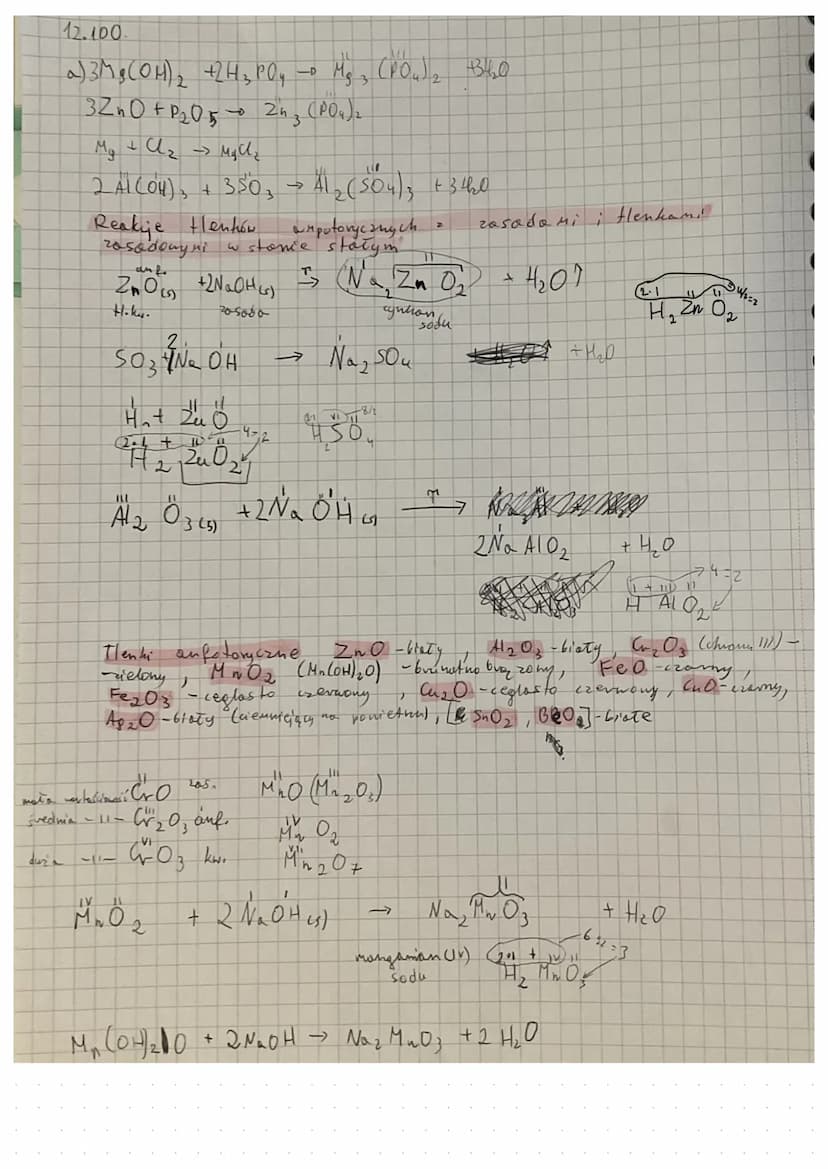 12.100.
a) 3Mg(OH)2 + 2H3PO4 → Mg3(PO4)2 + 3H2O
3ZnO + P2O5 → Zn3(PO4)2
Mg + Cl2 → MgCl2
2Al(OH)3 + 3SO3 → Al2(SO4)3 + 3H2O
Reakcje tlenków amfoterycznych z zasadami i tlenkami
zasadowymi w stanie stałym
amf.
ZnO(s) + 2NaOH(s) →T Na2ZnO2 + H2O↑
tl.kw. zasada cynkan sodu
2·1 II 4/2=2
H2ZnO2
SO3 + 2NaOH → Na2SO4 + H2O
H2 + ZnO
2·1 + II 4=2
H2ZnO2
H2SO4
Al2O3(s) + 2NaOH(s) →T
2NaAlO2 + H2O
I + III 4=2
HAlO2
Tlenki amfoteryczne ZnO - biały, Al2O3 - biały, Cr2O3 (chromu III) -
- zielony, MnO2 (Mn(OH)2O) - brunatno brązowy, FeO - czarny,
Fe2O3 - ceglasto czerwony, Cu2O - ceglasto czerwony, CuO - czarny,
Ag2O - biały (ciemniejący na powietrzu), [SnO2, BeO] - białe
mała wartościowość CrO zas. MnO (Mn2O3)
średnia -11- Cr2O3 amf. MnO2
duża -11- CrO3 kw. Mn2O7
MnO2 + 2NaOH(s) → Na2MnO3 + H2O
manganian (IV) sodu 2·1 + IV 6:2=3
H2MnO3
Mn(OH)2O + 2NaOH → Na2MnO3 + 2H2O